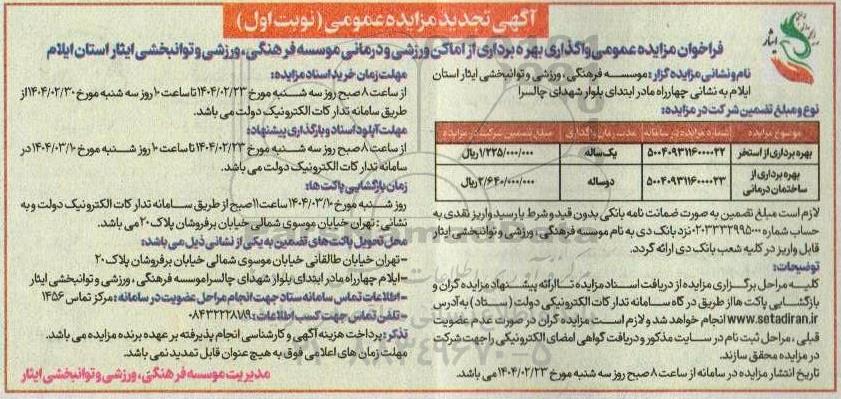 آگهی تجدید مزایده عمومی (نوبت اول)
ایثار
فراخوان مزایده عمومی واگذاری بهره برداری از اماکن ورزشی و درمانی موسسه فرهنگی، ورزشی و توانبخشی ایثار استان ایلام
نام و نشانی مزایده گزار: موسسه فرهنگی، ورزشی و توانبخشی ایثار استان
ایلام به نشانی چهارراه مادر ابتدای بلوار شهدای چالسرا
نوع و مبلغ تضمین شرکت در مزایده:
موضوع مزایده | شماره مزایده در سامانه | مدت زمان واگذاری | مبلغ تضمین شرکت در مزایده
بهره برداری از استخر | ۵۰۰۴۰۹۳۱۱۶۰۰۰۰۲۲ | یک ساله | ۱/۲۲۵/۰۰۰/۰۰۰ ریال
بهره برداری از
ساختمان درمانی | ۵۰۰۴۰۹۳۱۱۶۰۰۰۰۲۳ | دوساله | ۲/۶۴۰/۰۰۰/۰۰۰ ریال
لازم است مبلغ تضمین به صورت ضمانت نامه بانکی بدون قید و شرط یا رسید واریز نقدی به
حساب شماره ۰۲۰۳۳۳۲۹۹۵۰۰۰ نزد بانک دی به نام موسسه فرهنگی، ورزشی و توانبخشی ایثار
قابل واریز در کلیه شعب بانک دی ارائه گردد.
توضیحات:
کلیه مراحل برگزاری مزایده از دریافت اسناد مزایده تا ارائه پیشنهاد مزایده گران و
بازگشایی پاکت ها از طریق درگاه سامانه تدارکات الکترونیکی دولت (ستاد) به آدرس
www.setadiran.ir انجام خواهد شد و لازم است مزایده گران در صورت عدم عضویت
قبلی، مراحل ثبت نام در سایت مذکور و دریافت گواهی امضای الکترونیکی را جهت شرکت
در مزایده محقق سازند.
تاریخ انتشار مزایده در سامانه از ساعت ۸ صبح روز سه شنبه مورخ ۱۴۰۴/۰۲/۲۳ می باشد.
مهلت زمان خرید اسناد مزایده:
از ساعت ۸ صبح روز سه شنبه مورخ ۱۴۰۴/۰۲/۲۳ تا ساعت ۱۰ روز سه شنبه مورخ ۱۴۰۴/۰۲/۳۰ از
طریق سامانه تدارکات الکترونیک دولت می باشد.
مهلت آپلود اسناد و بارگذاری پیشنهاد:
از ساعت ۸ صبح روز سه شنبه مورخ ۱۴۰۴/۰۲/۲۳ تا ساعت ۱۰ روز شنبه مورخ ۱۴۰۴/۰۳/۱۰ در
سامانه تدارکات الکترونیک دولت می باشد.
زمان بازگشایی پاکت ها:
روز شنبه مورخ ۱۴۰۴/۰۳/۱۰ ساعت ۱۱ صبح از طریق سامانه تدارکات الکترونیک دولت و به
نشانی: تهران خیابان موسوی شمالی خیابان برفروشان پلاک ۲۰ می باشد.
محل تحویل پاکت های تضمین به یکی از نشانی ذیل می باشد:
-تهران خیابان طالقانی خیابان موسوی شمالی خیابان برفروشان پلاک ۲۰
-ایلام چهارراه مادر ابتدای بلوار شهدای چالسرا موسسه فرهنگی، ورزشی و توانبخشی ایثار
-اطلاعات تماس سامانه ستاد جهت انجام مراحل عضویت در سامانه: مرکز تماس ۱۴۵۶
-تلفن تماس جهت کسب اطلاعات: ۰۸۴۳۲۲۲۸۱۷۹
تذکر: پرداخت هزینه آگهی و کارشناسی انجام پذیرفته بر عهده برنده مزایده می باشد.
مهلت زمان های اعلامی فوق به هیچ عنوان قابل تمدید نمی باشد.
مدیریت موسسه فرهنگی، ورزشی و توانبخشی ایثار